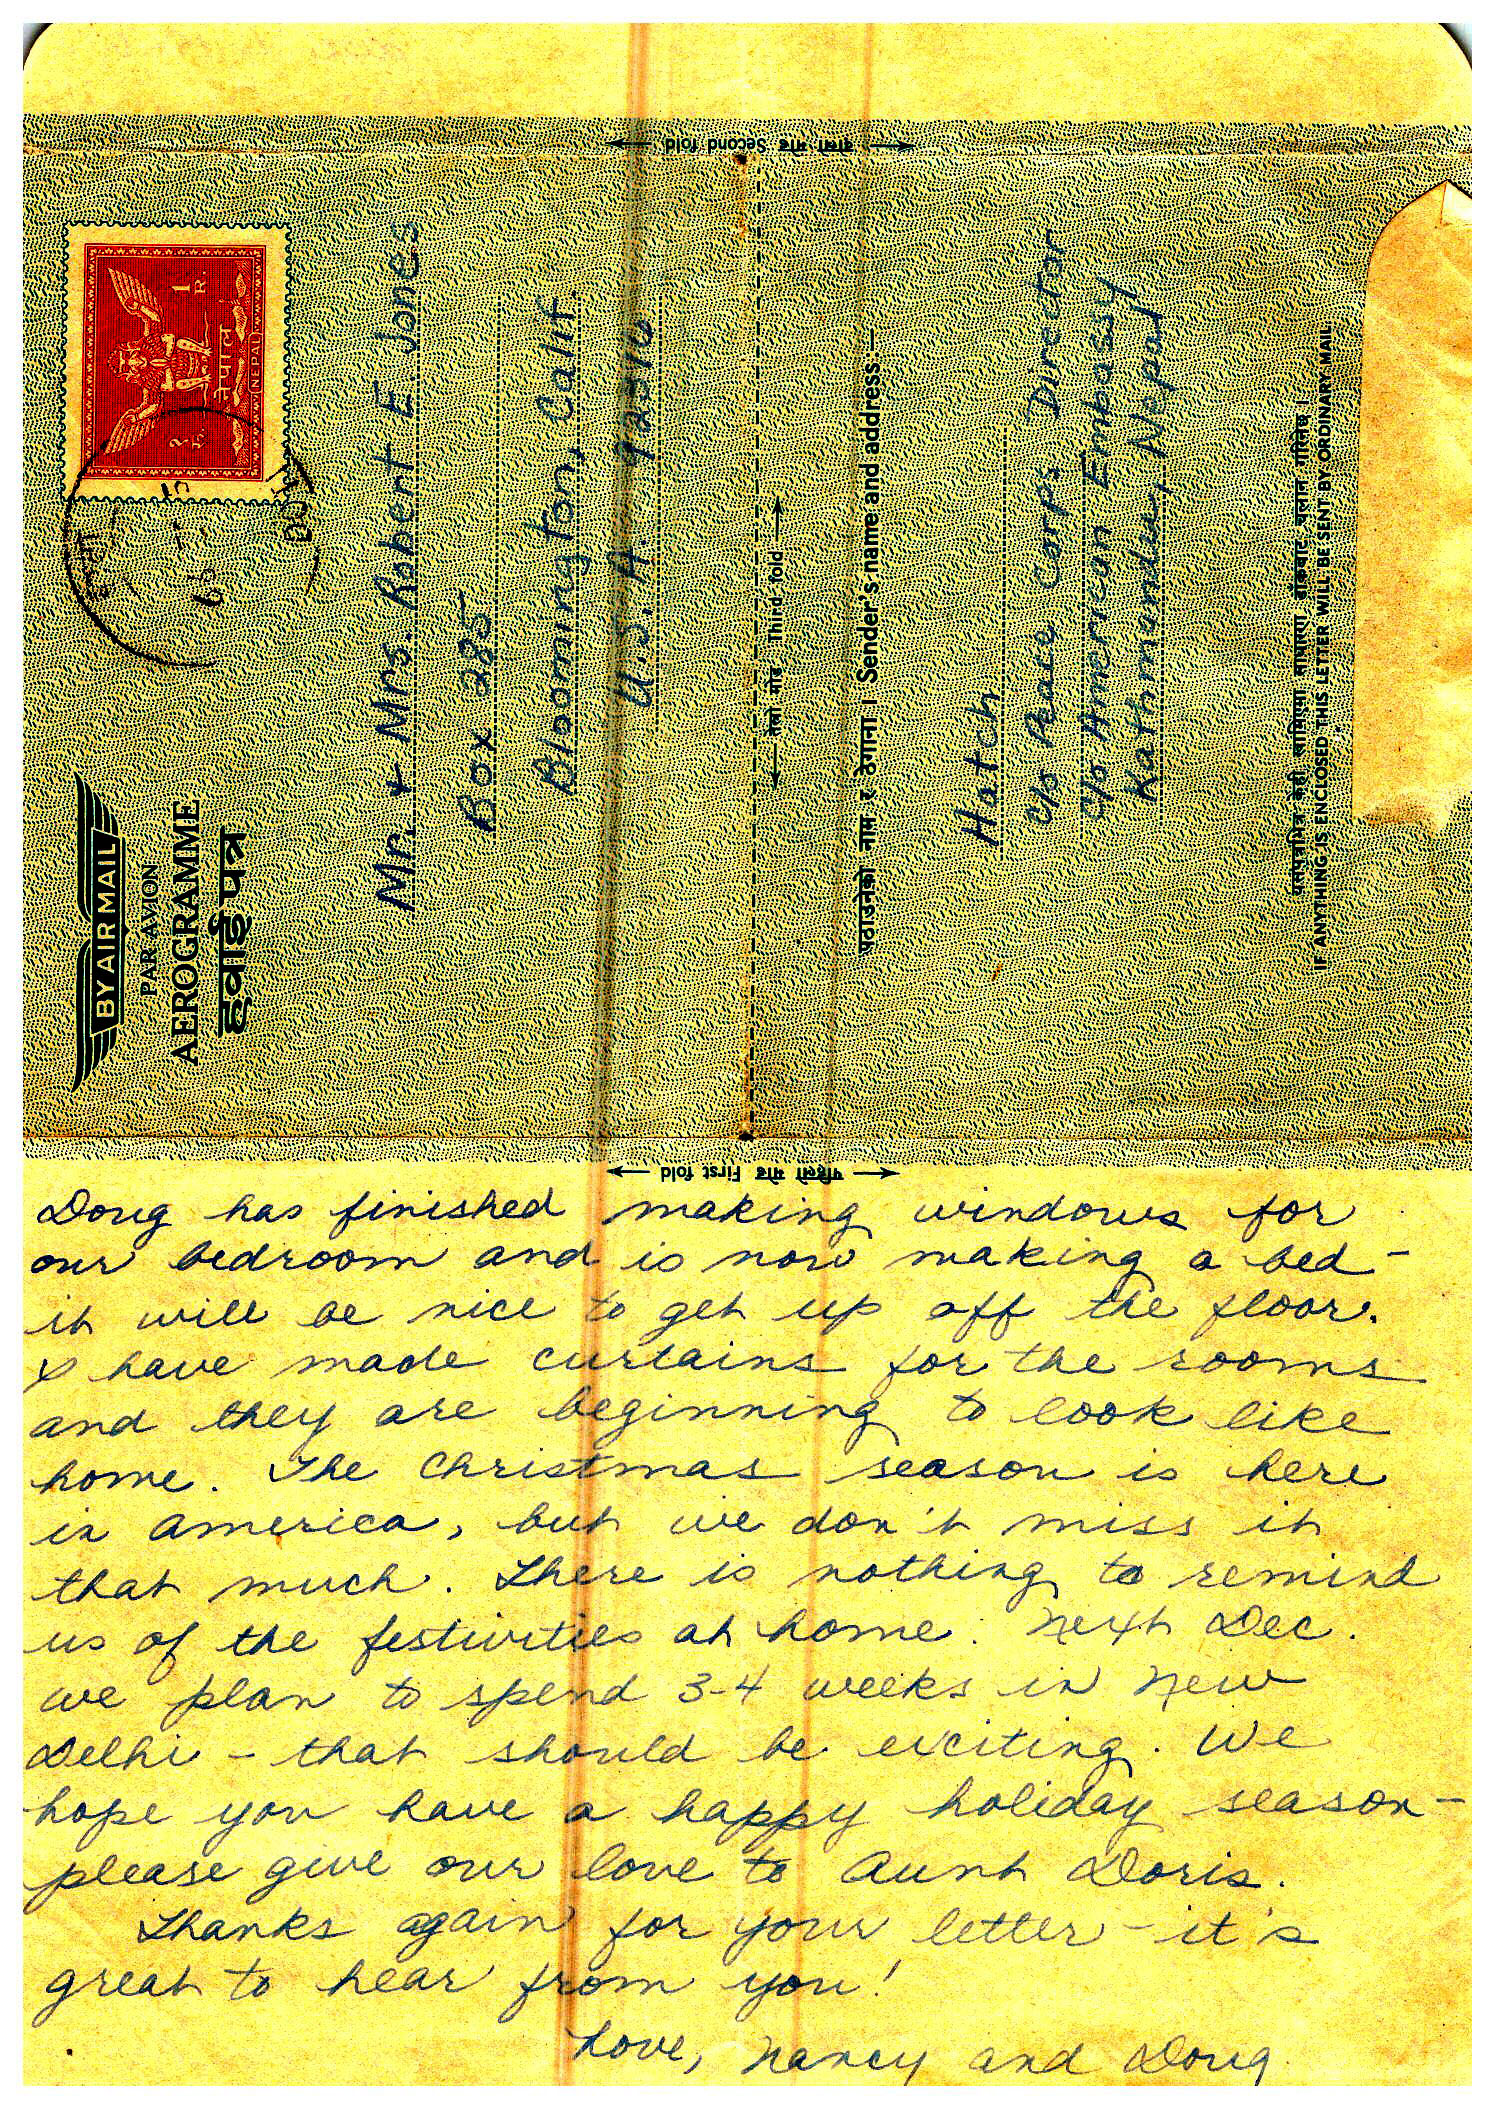 दोस्रो मोड Second fold
१ रु.
1 R.
नेपाल
NEPAL
BY AIR MAIL
PAR AVION
AEROGRAMME
हवाई पत्र
Mr. & Mrs. Robert E Jones
Box 285
Bloomington, Calif
U.S.A. 92316
तेस्रो मोड Third fold
पठाउनेको नाम र ठेगाना । Sender's name and address:—
Hatch
c/o Peace Corps Director
c/o American Embassy
Kathmandu, Nepal
यसपत्रभित्र केही साधारण डाँकबाट चलान गरिनेछ ।
IF ANYTHING IS ENCLOSED THIS LETTER WILL BE SENT BY ORDINARY MAIL
पहिलो मोड First fold
Doug has finished making windows for
our bedroom and is now making a bed –
it will be nice to get up off the floor.
I have made curtains for the rooms
and they are beginning to look like
home. The Christmas season is here
in America, but we don't miss it
that much. There is nothing to remind
us of the festivities at home. Next Dec.
we plan to spend 3-4 weeks in New
Delhi – that should be exciting. We
hope you have a happy holiday season –
please give our love to Aunt Doris.
Thanks again for your letter – it's
great to hear from you!
Love, Nancy and Doug